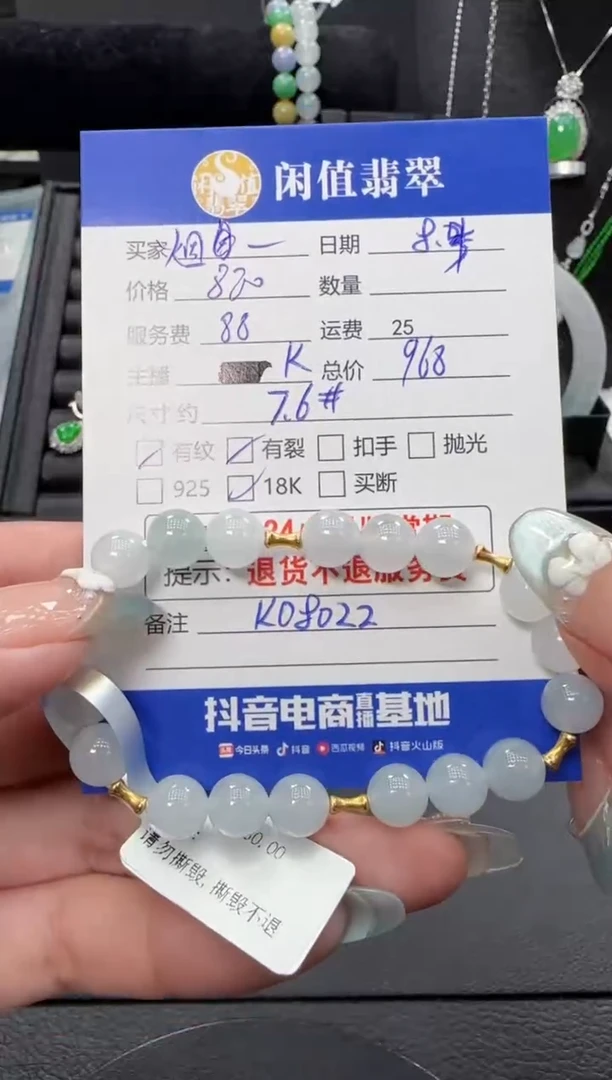 闲值翡翠
买家 烟 一 日期 8.
价格 830 数量
服务费 88 运费 25
主播 K 总价 968
尺寸约 7.6#
有纹 有裂 扣手 抛光
925 18K 买断
24
提示：退货不退服务费
备注 K08022
抖音电商直播基地
今日头条 抖音 西瓜视频 抖音火山版
0.00
请勿撕毁，撕毁不退